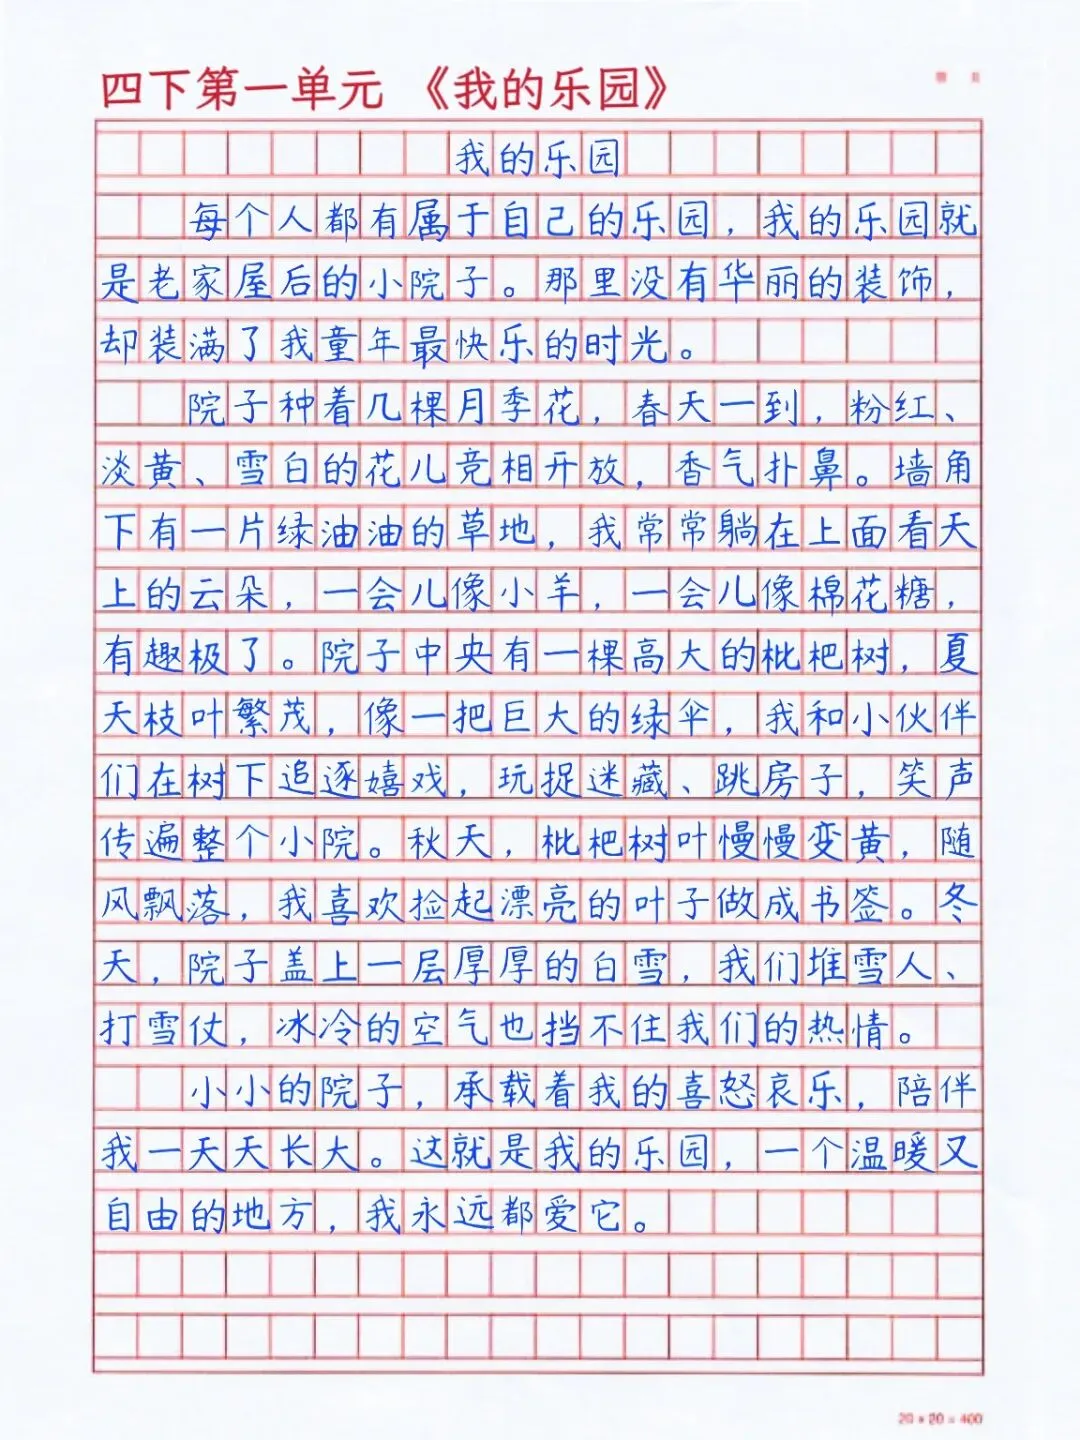 四下第一单元 《我的乐园》
我的乐园
每个人都有属于自己的乐园，我的乐园就
是老家屋后的小院子。那里没有华丽的装饰，
却装满了我童年最快乐的时光。
院子种着几棵月季花，春天一到，粉红、
淡黄、雪白的花儿竞相开放，香气扑鼻。墙角
下有一片绿油油的草地，我常常躺在上面看天
上的云朵，一会儿像小羊，一会儿像棉花糖，
有趣极了。院子中央有一棵高大的枇杷树，夏
天枝叶繁茂，像一把巨大的绿伞，我和小伙伴
们在树下追逐嬉戏，玩捉迷藏、跳房子，笑声
传遍整个小院。秋天，枇杷树叶慢慢变黄，随
风飘落，我喜欢捡起漂亮的叶子做成书签。冬
天，院子盖上一层厚厚的白雪，我们堆雪人、
打雪仗，冰冷的空气也挡不住我们的热情。
小小的院子，承载着我的喜怒哀乐，陪伴
我一天天长大。这就是我的乐园，一个温暖又
自由的地方，我永远都爱它。
20×20=400